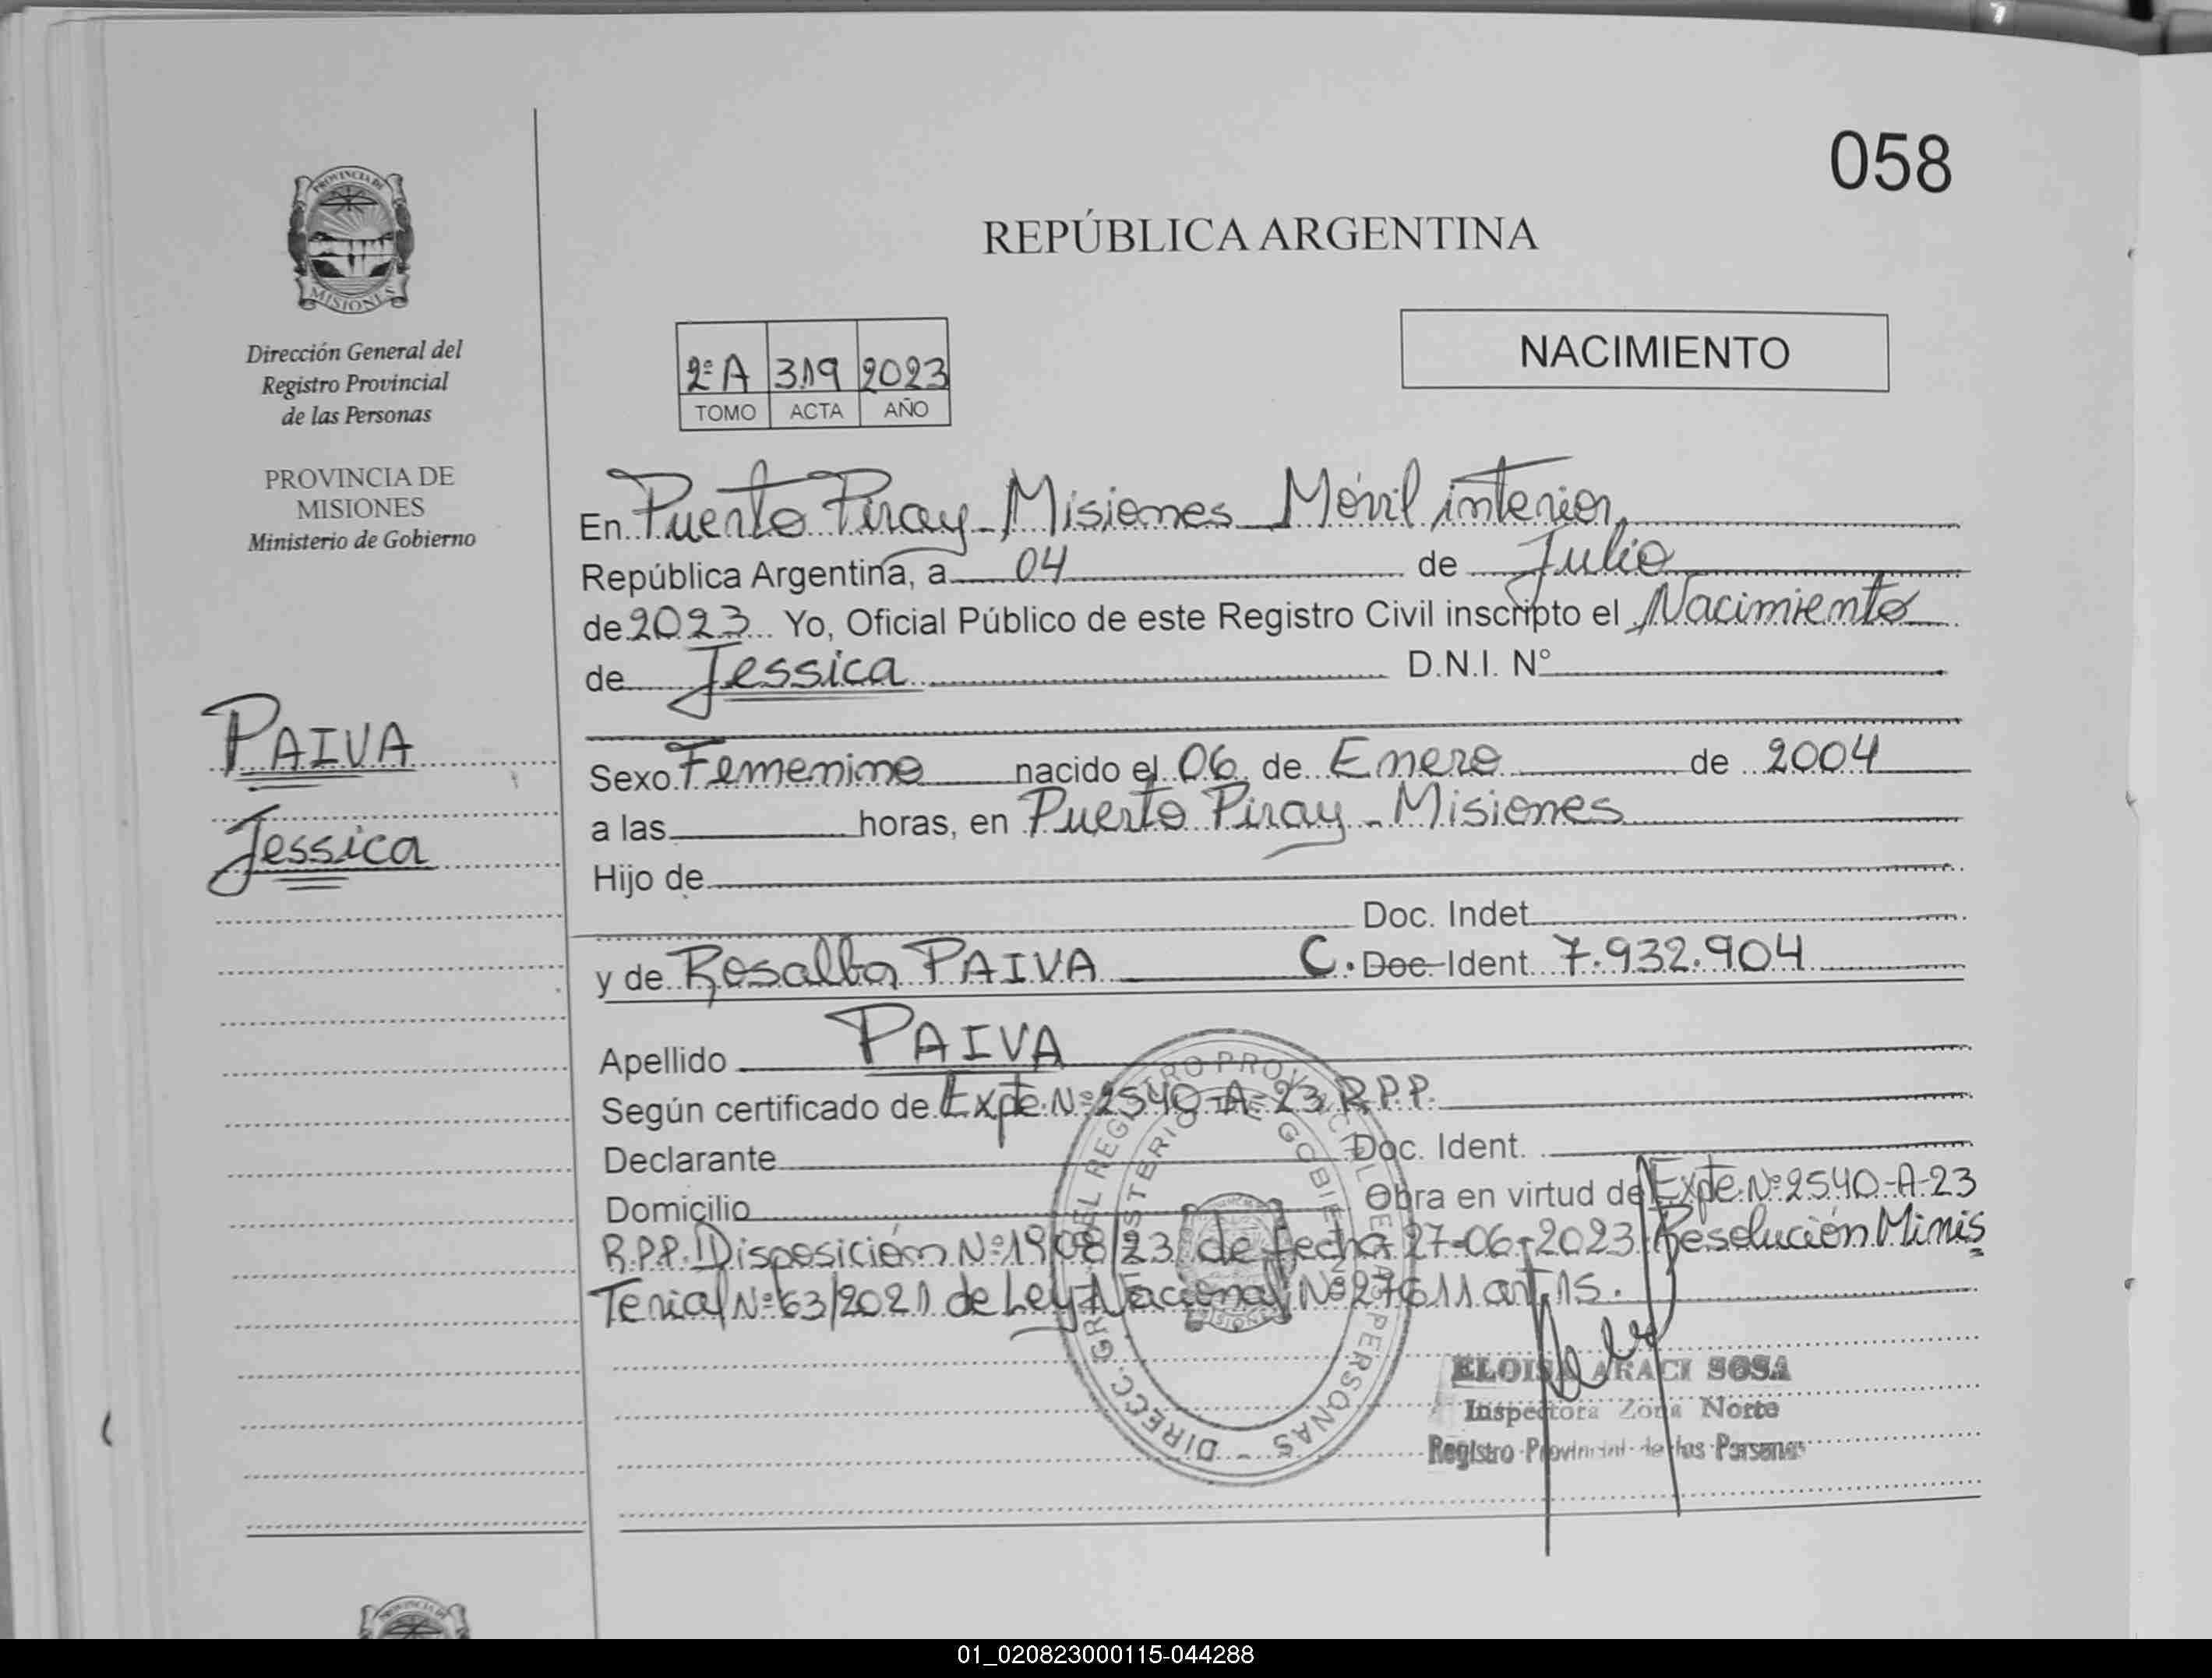 058
REPÚBLICA ARGENTINA
PROVINCIA DE
MISIONES
Dirección General del
Registro Provincial
de las Personas
PROVINCIA DE
MISIONES
Ministerio de Gobierno
PAIVA
Jessica
2º A 319 2023
TOMO ACTA AÑO
NACIMIENTO
En Puerto Piray - Misiones Móvil interior,
República Argentina, a 04 de Julio
de 2023 Yo, Oficial Público de este Registro Civil inscripto el Nacimiento
de Jessica D.N.I. N°
Sexo Femenino nacido el 06 de Enero de 2004
a las horas, en Puerto Piray - Misiones
Hijo de
Doc. Indet
y de Rosalba PAIVA C. Doc. Ident 7.932.904
Apellido PAIVA
Según certificado de Expte. Nº 2540-A-23 R.P.P.
Declarante Doc. Ident.
Domicilio Obra en virtud de Expte. Nº 2540-A-23
R.P.P. Disposición Nº 1908/23 de fecha 27-06-2023 Resolución Minis
Terial Nº 63/2021 de Ley Nacional Nº 27611 art. 15.
DIRECC. GRAL. DEL REGISTRO PROVINCIAL DE LAS PERSONAS
MINISTERIO DE GOBIERNO
MISIONES
ELOISA ARACI SOSA
Inspectora Zona Norte
Registro Provincial de las Personas
01_020823000115-044288